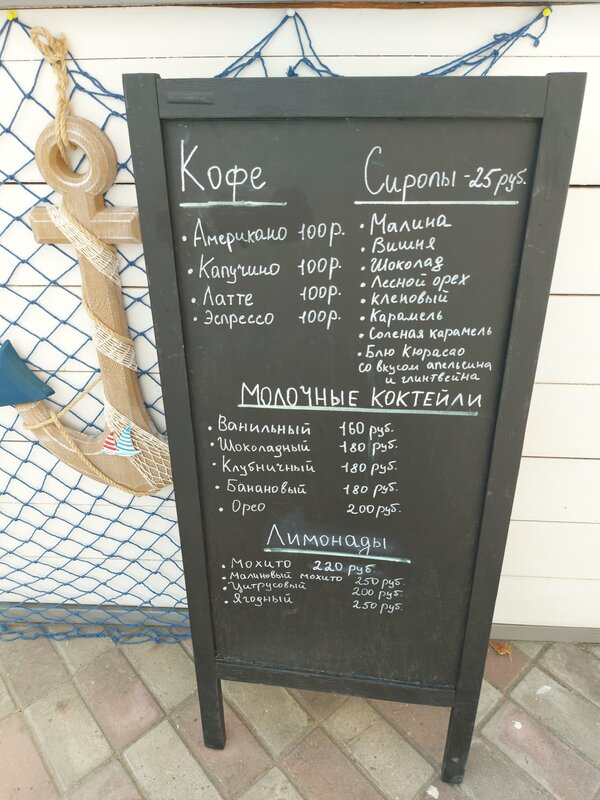 Кофе
• Американо 100р.
• Капучино 100р.
• Латте 100р.
• Эспрессо 100р.
Сиропы - 25 руб.
• Малина
• Вишня
• Шоколад
• Лесной орех
• кленовый
• Карамель
• Соленая карамель
• Блю Кюрасао
со вкусом апельсина
и глинтвейна
МОЛОЧНЫЕ КОКТЕЙЛИ
• Ванильный 160 руб.
• Шоколадный 180 руб.
• Клубничный 180 руб.
• Банановый 180 руб.
• Орео 200 руб.
Лимонады
• Мохито 220 руб
• Малиновый мохито 250 руб.
• Цитрусовый 200 руб.
• Ягодный 250 руб.